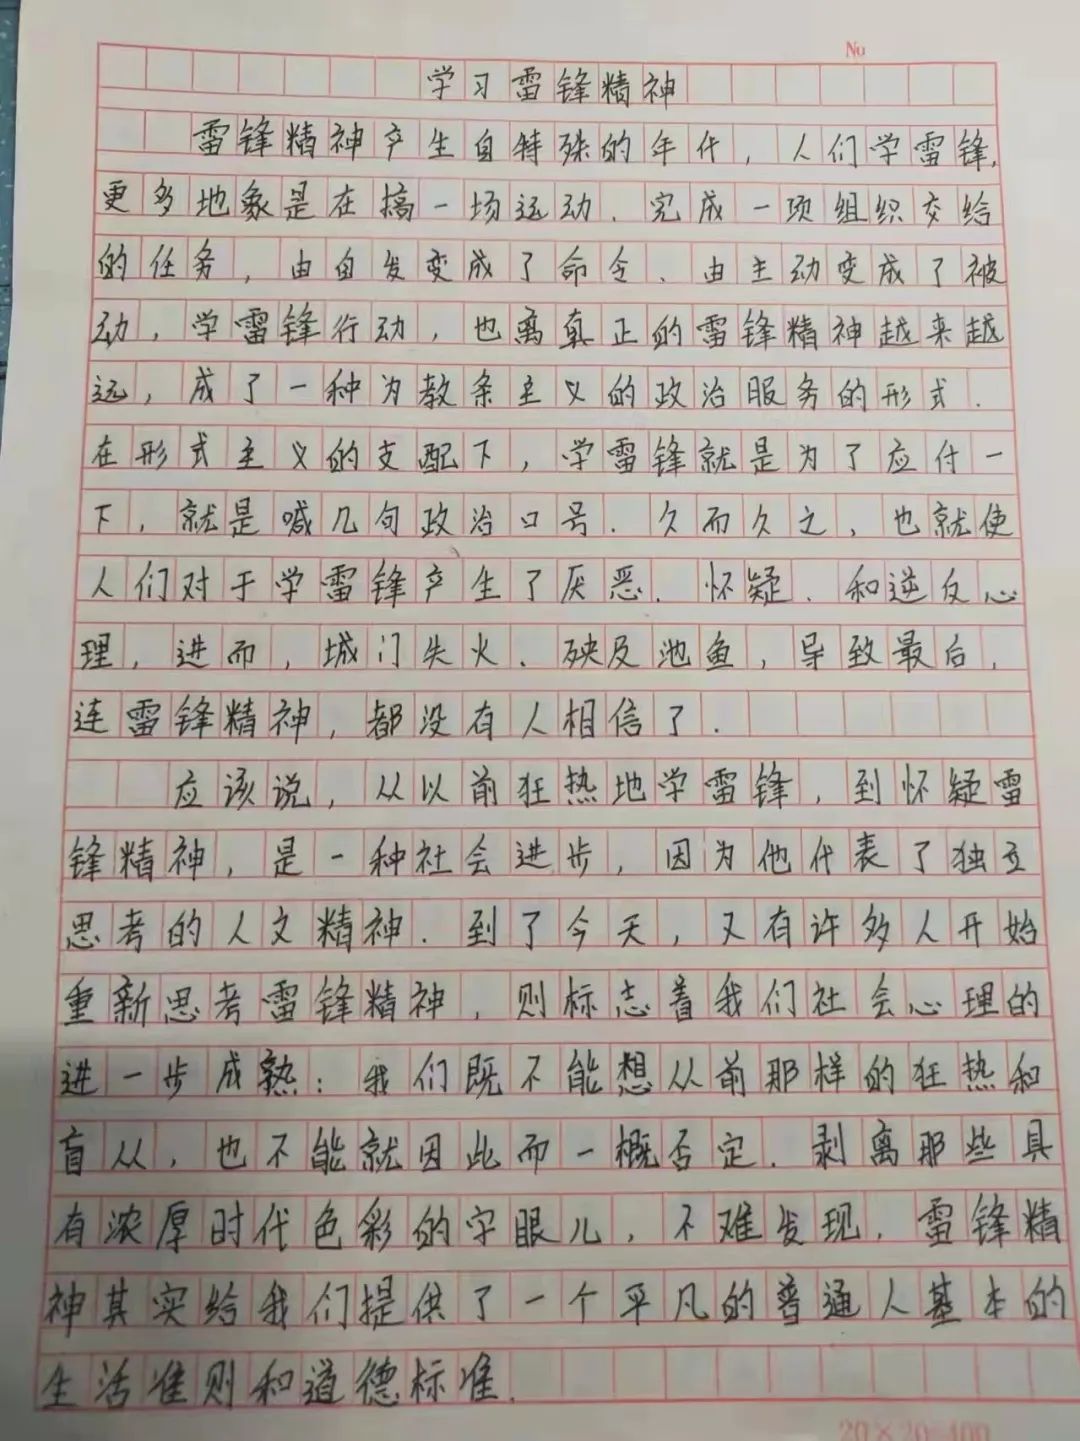 No
学习雷锋精神
雷锋精神产生自特殊的年代，人们学雷锋，
更多地象是在搞一场运动、完成一项组织交给
的任务，由自发变成了命令、由主动变成了被
动，学雷锋行动，也离真正的雷锋精神越来越
远，成了一种为教条主义的政治服务的形式.
在形式主义的支配下，学雷锋就是为了应付一
下，就是喊几句政治口号.久而久之，也就使
人们对于学雷锋产生了厌恶、怀疑、和逆反心
理，进而，城门失火、殃及池鱼，导致最后，
连雷锋精神，都没有人相信了.
应该说，从以前狂热地学雷锋，到怀疑雷
锋精神，是一种社会进步，因为他代表了独立
思考的人文精神.到了今天，又有许多人开始
重新思考雷锋精神，则标志着我们社会心理的
进一步成熟：我们既不能想从前那样的狂热和
盲从，也不能就因此而一概否定.剥离那些具
有浓厚时代色彩的字眼儿，不难发现，雷锋精
神其实给我们提供了一个平凡的普通人基本的
生活准则和道德标准.
20×20=400